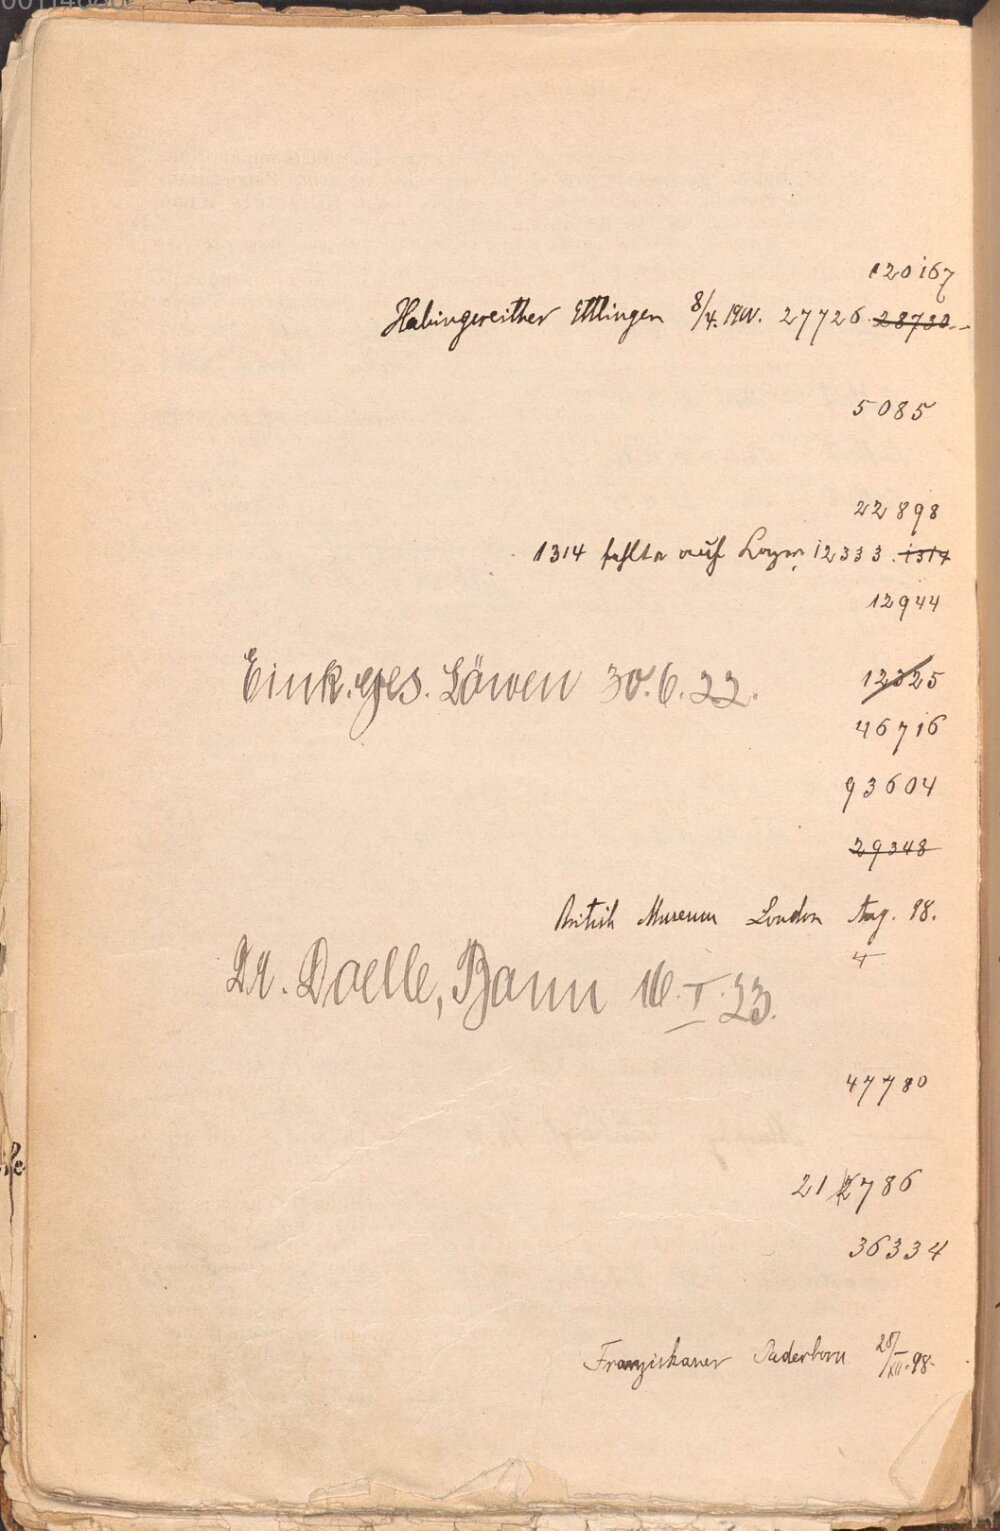 120167
Habingsreither Ettlingen 8/4. 1900. 27726 28730.-
5085
22898
1314 fehlte auf Lager, 12333. 1314
12944
Eink.ges. Löwen 30.6.22.
12325
46716
93604
29348
British Museum London Aug. 98.
4
Dr. Doelle, Bonn 16.I.23.
47780
212786
36334
Franziskaner Paderborn 28/XII.98.